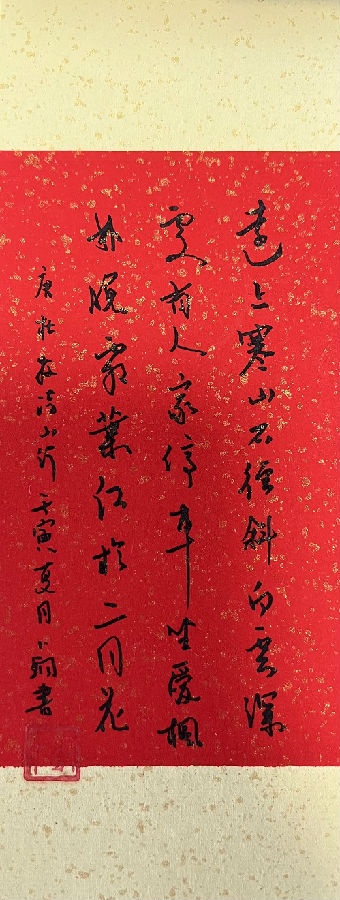 遠上寒山石徑斜白雲深
處有人家停車坐愛楓
林晚霜葉紅於二月花
唐杜牧詩山行壬寅夏月書